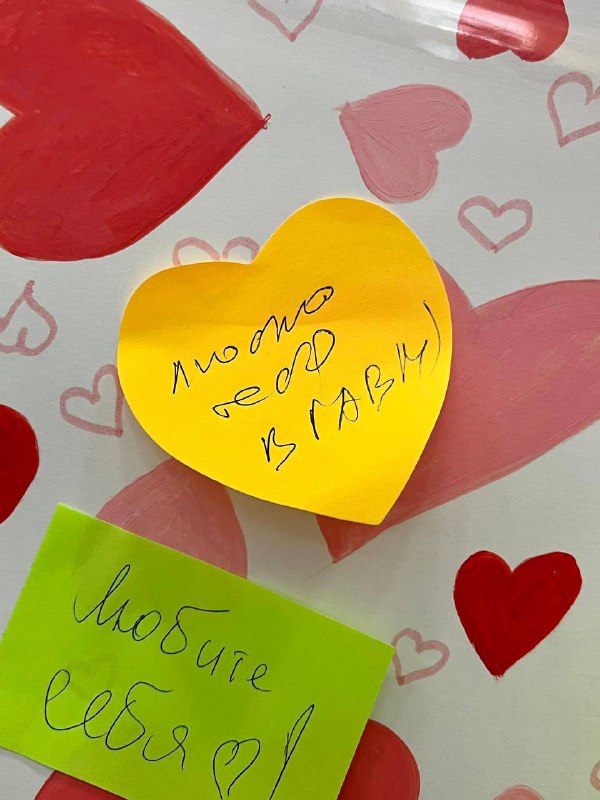 люблю
тебя
в ГАВ
Любите
себя ♡!